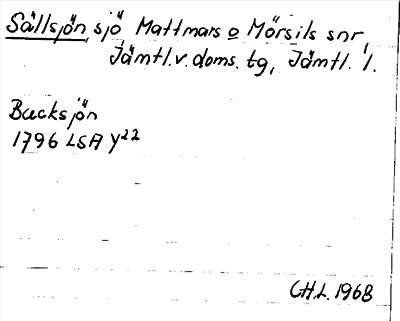 Sällsjön, sjö, Mattmars o Mörsils snr,
Jämtl.v.doms.tg, Jämtl. l.
Backsjön
1796 LSA Y22
CH.L. 1968